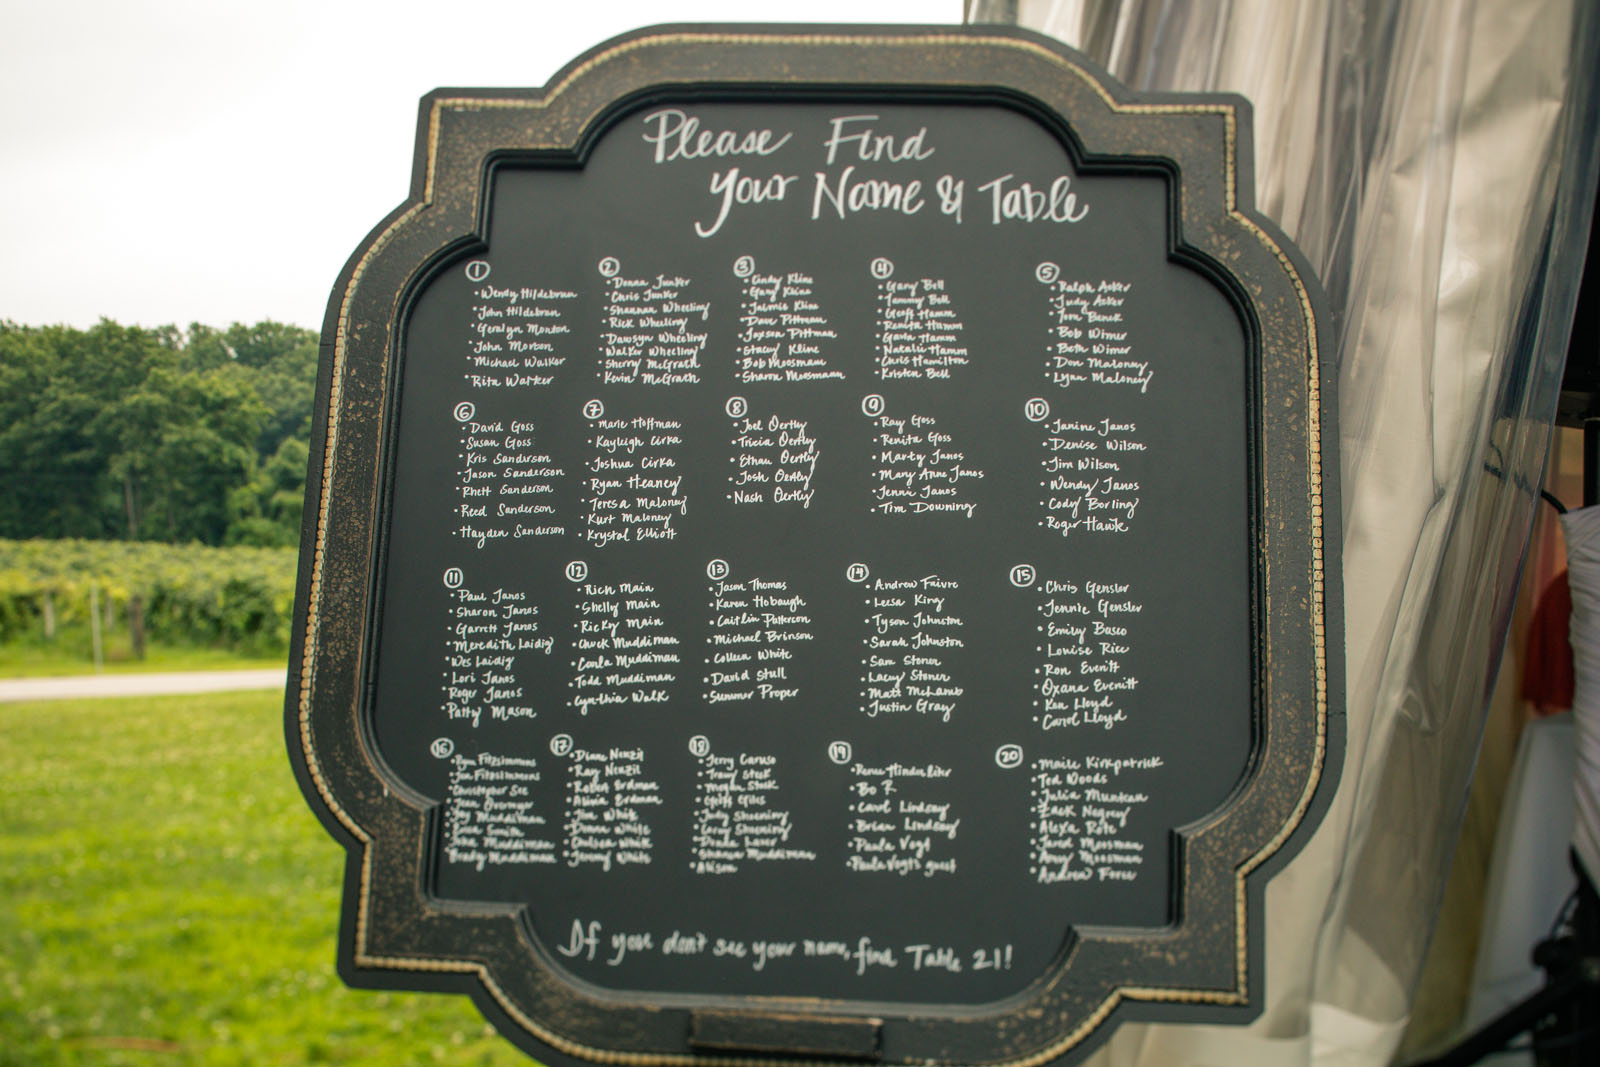 Please Find
your Name & Table
1
• Wendy Hildebran
• John Hildebran
• Geralyn Morton
• John Morton
• Michael Walker
• Rita Walker
2
• Donna Junker
• Chris Junker
• Shannan Wheeling
• Rick Wheeling
• Dawsyn Wheeling
• Walker Wheeling
• Sherry McGrath
• Kevin McGrath
3
• Cindy Kline
• Gary Kline
• Jaimie Kline
• Dave Pittman
• Jaxson Pittman
• Stacey Kline
• Bob Moosman
• Sharon Moosmann
4
• Gary Bell
• Tammy Bell
• Geoff Hamm
• Renita Hamm
• Gavin Hamm
• Natalie Hamm
• Chris Hamilton
• Kristen Bell
5
• Ralph Asker
• Judy Asker
• Tora Benek
• Bob Wimer
• Beth Wimer
• Don Maloney
• Lynn Maloney
6
• David Goss
• Susan Goss
• Kris Sanderson
• Jason Sanderson
• Rhett Sanderson
• Reed Sanderson
• Hayden Sanderson
7
• Marie Hoffman
• Kayleigh Cirka
• Joshua Cirka
• Ryan Heaney
• Teresa Maloney
• Kurt Maloney
• Krystal Elliott
8
• Joel Oertly
• Tricia Oertly
• Ethan Oertly
• Josh Oertly
• Nash Oertly
9
• Ray Goss
• Renita Goss
• Marty Janos
• Mary Anne Janos
• Jenni Janos
• Tim Downing
10
• Janine Janos
• Denise Wilson
• Jim Wilson
• Wendy Janos
• Cody Borling
• Roger Hawk
11
• Paul Janos
• Sharon Janos
• Garrett Janos
• Meredith Laidig
• Wes Laidig
• Lori Janos
• Roger Janos
• Patty Mason
12
• Rich Main
• Shelly Main
• Ricky Main
• Chuck Muddiman
• Carla Muddiman
• Todd Muddiman
• Cynthia Walk
13
• Jason Thomas
• Karen Hobaugh
• Caitlin Patterson
• Michael Brinson
• Colleen White
• David Stull
• Summer Proper
14
• Andrew Faivre
• Leesa King
• Tyson Johnston
• Sarah Johnston
• Sam Stoner
• Lacey Stoner
• Matt McLamb
• Justin Gray
15
• Chris Gensler
• Jennie Gensler
• Emily Basco
• Louise Rice
• Ron Everitt
• Oxana Everitt
• Ken Lloyd
• Carol Lloyd
16
• Ryan Fitzsimmons
• Jen Fitzsimmons
• Christopher See
• Jean Overmyer
• Jay Muddiman
• Smith
• John Muddiman
• Brady Muddiman
17
• Diane Nenzil
• Ray Nenzil
• Robert Erdman
• Alivia Erdman
• Jim White
• Donna White
• Chelsea White
• Jeremy White
18
• Jerry Caruso
• Travis Steck
• Megan Steck
• Geoff Giles
• Judy Shoening
• Leroy Shoening
• Donna Laver
• Shania Muddiman
• Alison
19
• Renee Hinderliter
• Bo R.
• Carol Lindsay
• Brian Lindsay
• Paula Vogt
• Paula Vogt's guest
20
• Maili Kirkpatrick
• Ted Woods
• Julia Muntean
• Zack Negrey
• Alexa Rote
• Jared Moosman
• Amy Moosman
• Andrew Force
If you don't see your name, find Table 21!